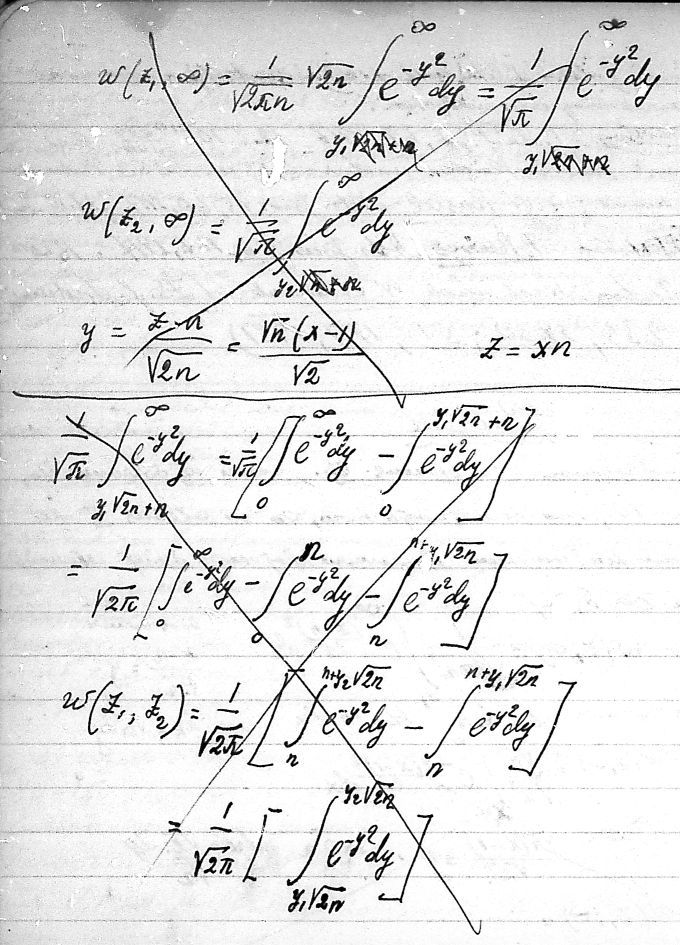 w(z₁, ∞) = 1/√(2πn) √(2n) ∫_{y₁}^{∞} e^{-y²}dy = 1/√π ∫_{y₁}^{∞} e^{-y²}dy
w(z₂, ∞) = 1/√π ∫_{y₂}^{∞} e^{-y²}dy
y = (z-n)/√(2n) = √n(x-1)/√2    z = xn
1/√π ∫_{y₁√2n+n}^{∞} e^{-y²}dy = 1/√π [∫_{0}^{∞} e^{-y²}dy - ∫_{0}^{y₁√2n+n} e^{-y²}dy]
= 1/√2π [∫_{0}^{∞} e^{-y²}dy - ∫_{0}^{n} e^{-y²}dy - ∫_{n}^{n+y₁√2n} e^{-y²}dy]
w(z₁, z₂) = 1/√2π [∫_{n}^{n+y₂√2n} e^{-y²}dy - ∫_{n}^{n+y₁√2n} e^{-y²}dy]
= 1/√2π [∫_{y₁√2n}^{y₂√2n} e^{-y²}dy]